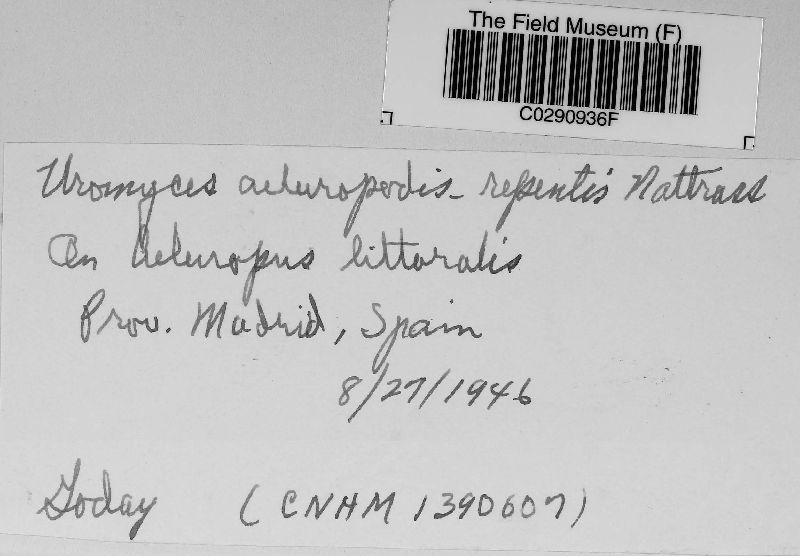 The Field Museum (F)
C0290936F
Uromyces aeluropodis-repentis Nattrass
On Aeluropus littoralis
Prov. Madrid, Spain
8/27/1946
Goday (CNHM 1390607)